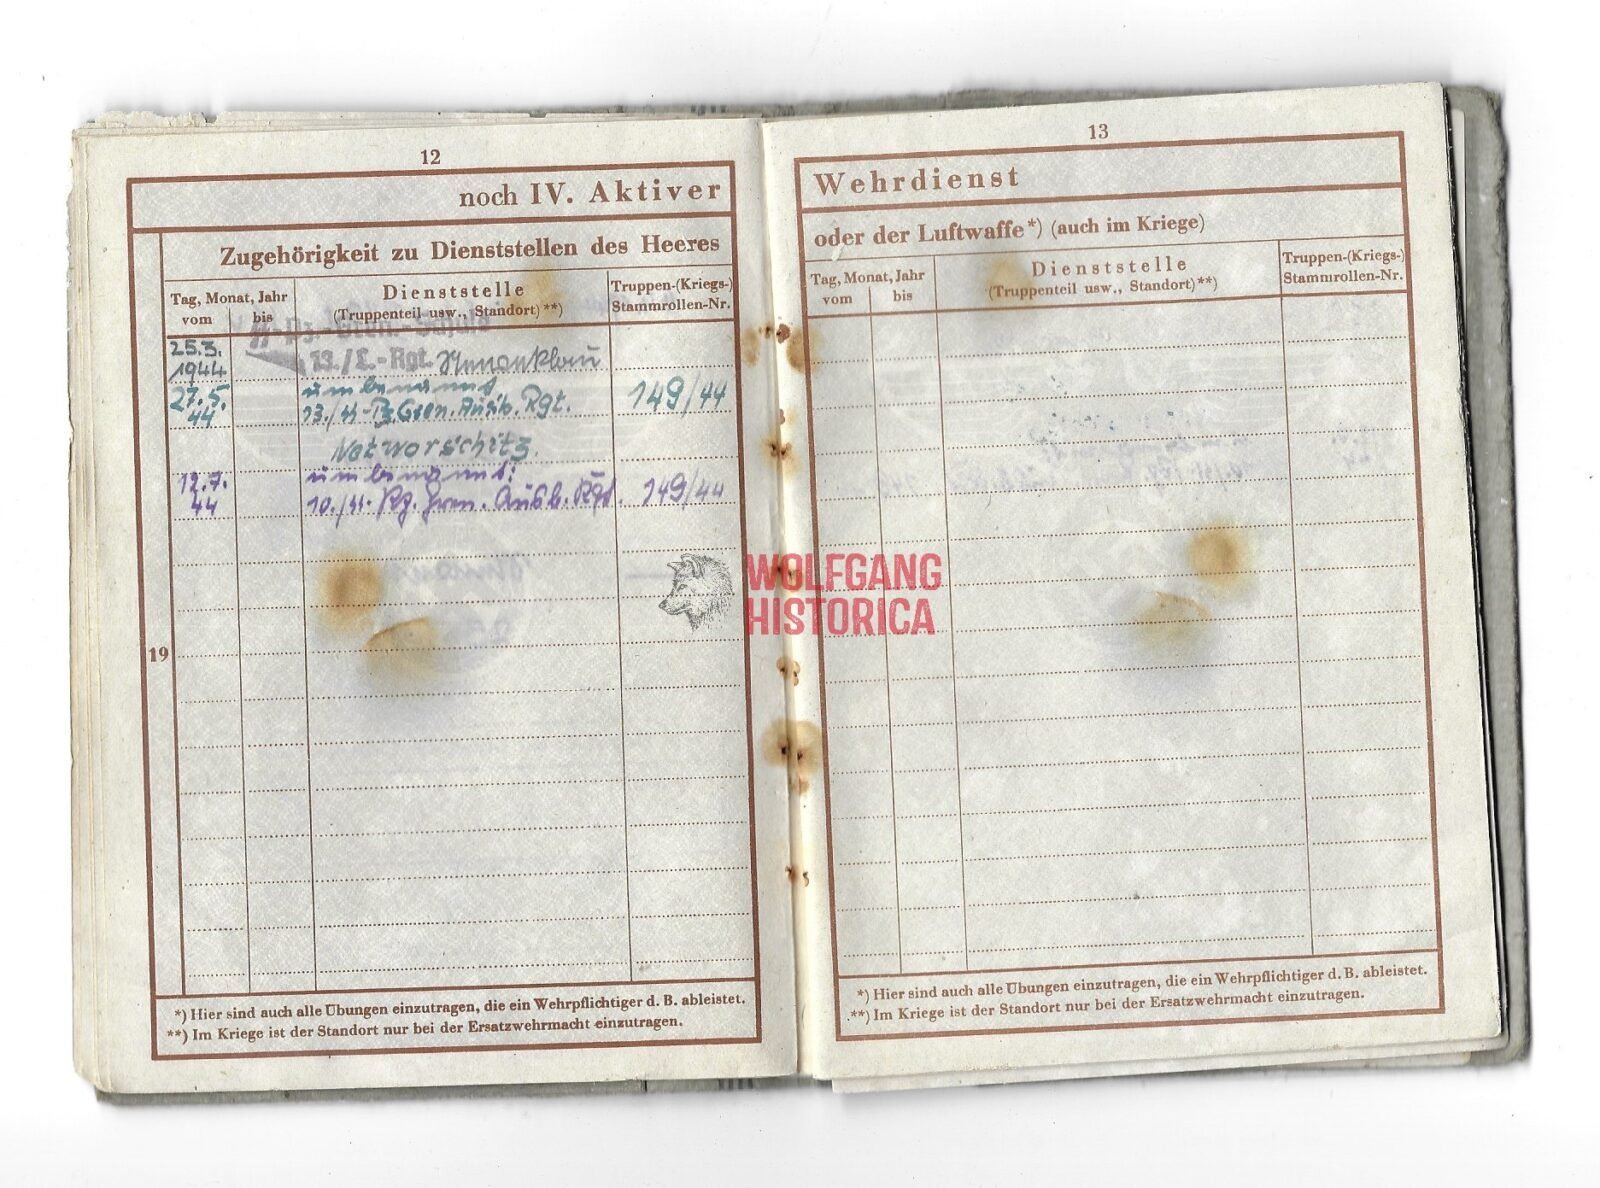 12
noch IV. Aktiver
Zugehörigkeit zu Dienststellen des Heeres
Tag, Monat, Jahr
vom bis
Dienststelle
(Truppenteil usw., Standort)**)
Truppen-(Kriegs-)
Stammrollen-Nr.
25.3.
1944
13./E.-Rgt.
27.5.
44
umbenannt
13./SS-Pz.Gren.Ausb.Rgt.
149/44
Networschitz.
12.7.
44
umbenannt:
10./SS-Pz.Gren.Ausb.Rgt.
149/44
19
*) Hier sind auch alle Übungen einzutragen, die ein Wehrpflichtiger d. B. ableistet.
**) Im Kriege ist der Standort nur bei der Ersatzwehrmacht einzutragen.
13
Wehrdienst
oder der Luftwaffe*) (auch im Kriege)
Tag, Monat, Jahr
vom bis
Dienststelle
(Truppenteil usw., Standort)**)
Truppen-(Kriegs-)
Stammrollen-Nr.
*) Hier sind auch alle Übungen einzutragen, die ein Wehrpflichtiger d. B. ableistet.
**) Im Kriege ist der Standort nur bei der Ersatzwehrmacht einzutragen.
WOLFGANG
HISTORICA